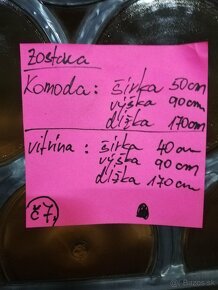 Zostava
Komoda: šírka 50cm
výška 90cm
dĺžka 170cm
vitrína: šírka 40cm
výška 90cm
dĺžka 170cm
č7,
Bazos.sk